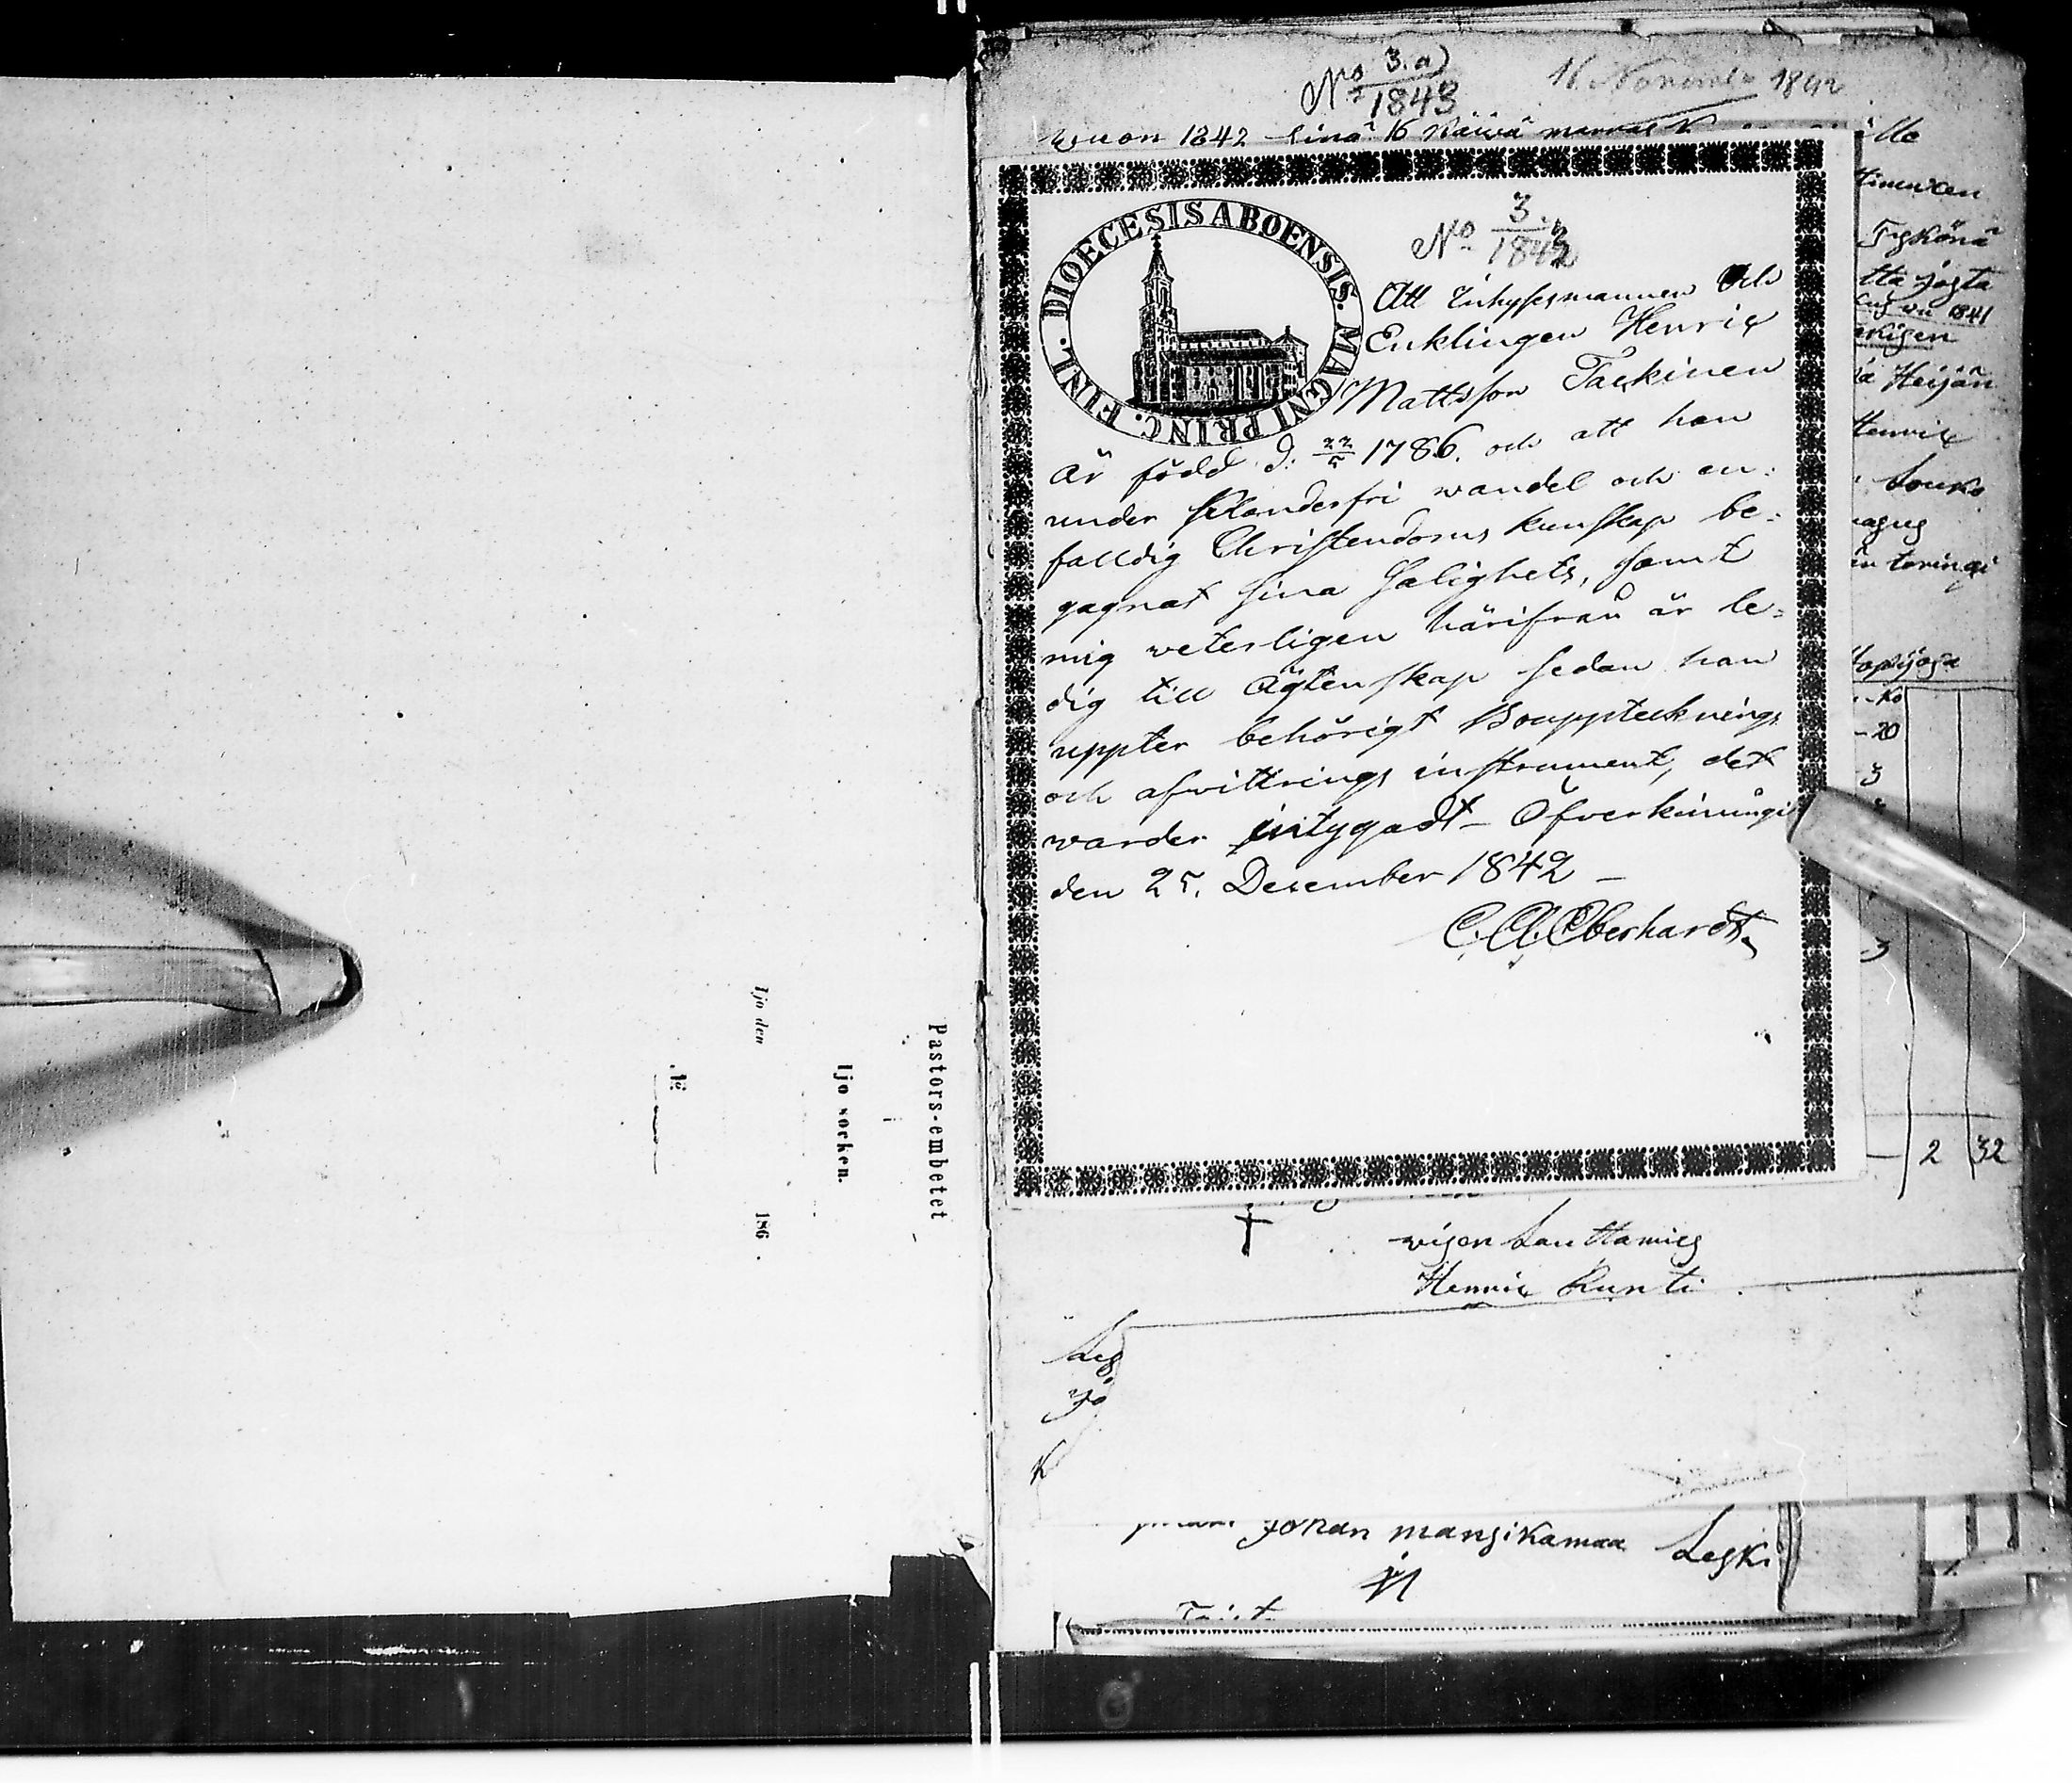 Pastors-embetet
Ijo socken.
Ijo den 186 .
№
No 3.a)
1843
16 November 1842
wuon 1842 sinä 16 Päiwä marras
lle
DIOECESIS ABOENSIS. MAGNI PRINC. FINL.
No 3.
1843
Att Inhysesmannen Och
Enklingen Henric
Mattsson Taskinen
är född d: 22/5 1786. och att han
under klanderfri wandel och en-
falldig Christendoms kunskap be-
gagnat sina Salighets, samt
mig veterligen härifrån är le-
dig till Ägtenskap sedan han
uppter behörigt Bouppteknings
och afvittrings instrument, det
warder intygadt - Öfverkiimingi
den 25. December 1842 -
C. A. Eberhardt
Tyskönä
tta josta
1841
Heijän
Henric
Souko
toringi
Ko
20
3
3
2 32
wijen Lauttamies
Henric Runti
Johan mansikamaa Leski